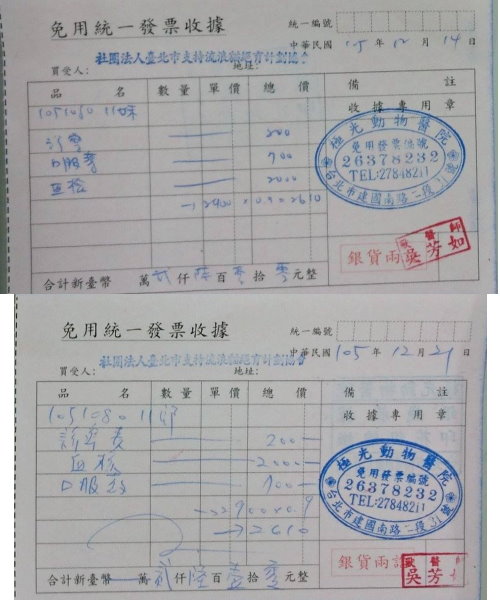 免用統一發票收據
統一編號
中華民國 105 年 12 月 14 日
社團法人臺北市支持流浪貓絕育計劃協會
買受人： 地址：
品名 數量 單價 總價 備註
收據專用章
200
口服藥 700
血檢 2000
→ 2900 x 0.9 = 2610
極光動物醫院
免用發票編號
26378232
TEL:27848211
台北市建國南路二段31號
銀貨兩
獸醫師
吳芳如
合計新臺幣 萬 貳 仟 陸 百 壹 拾 零 元整
免用統一發票收據
統一編號
中華民國 105 年 12 月 21 日
社團法人臺北市支持流浪貓絕育計劃協會
買受人： 地址：
品名 數量 單價 總價 備註
收據專用章
診察費 200
血檢 2000
口服藥 700
→ 2900 x 0.9
→ 2610
極光動物醫院
免用發票編號
26378232
TEL:27848211
台北市建國南路二段31號
銀貨兩訖
獸醫師
吳芳
合計新臺幣 萬 貳 仟 陸 百 壹 拾 零 元整